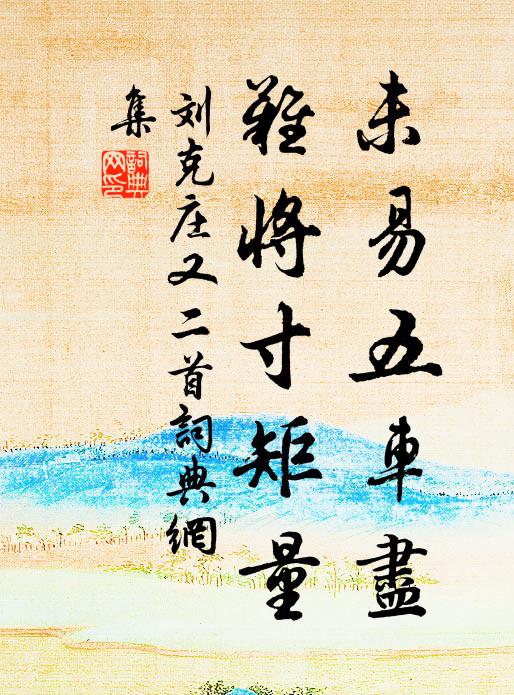 未易五車盡
難將寸矩量
刘克庄又二首詞典網
集
詞典
网印